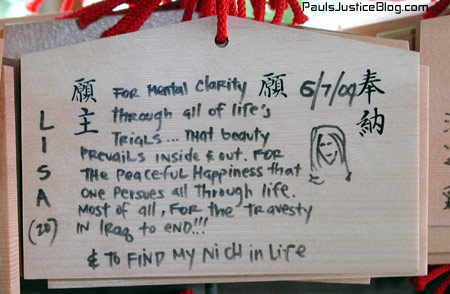 PaulsJusticeBlog.com
奉納
願
願主
6/7/04
LISA
(20)
FOR MENTAL CLARITY
THROUGH ALL OF LIFE'S
TRIALS... THAT BEAUTY
PREVAILS INSIDE & OUT. FOR
THE PEACEFUL HAPPINESS THAT
ONE PERSUES ALL THROUGH LIFE.
MOST OF ALL, FOR THE TRAVESTY
IN IRAQ TO END!!!
& TO FIND MY NICH IN LIFE